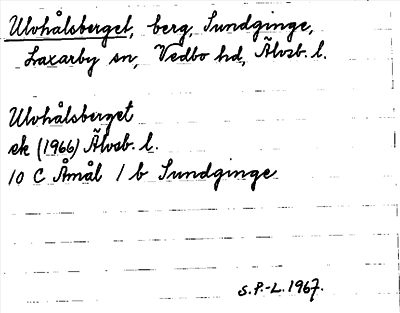 Ulvhålsberget, berg, Sundginge,
Laxarby sn, Vedbo hd, Älvsb. l.
Ulvhålsberget
ek (1966) Älvsb. l.
10 C Åmål 1 b Sundginge
S.P.-L. 1967.